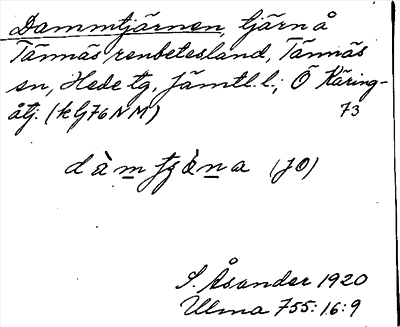 Dammtjärnen, tjärn å
Tännäs renbetesland, Tännäs
sn, Hede tg, Jämtl. l.; Ö Käring-
åtj. (k G76 NM) 73
dàmtjäna (JO)
S. Åsander 1920
Ulma 755:16:9